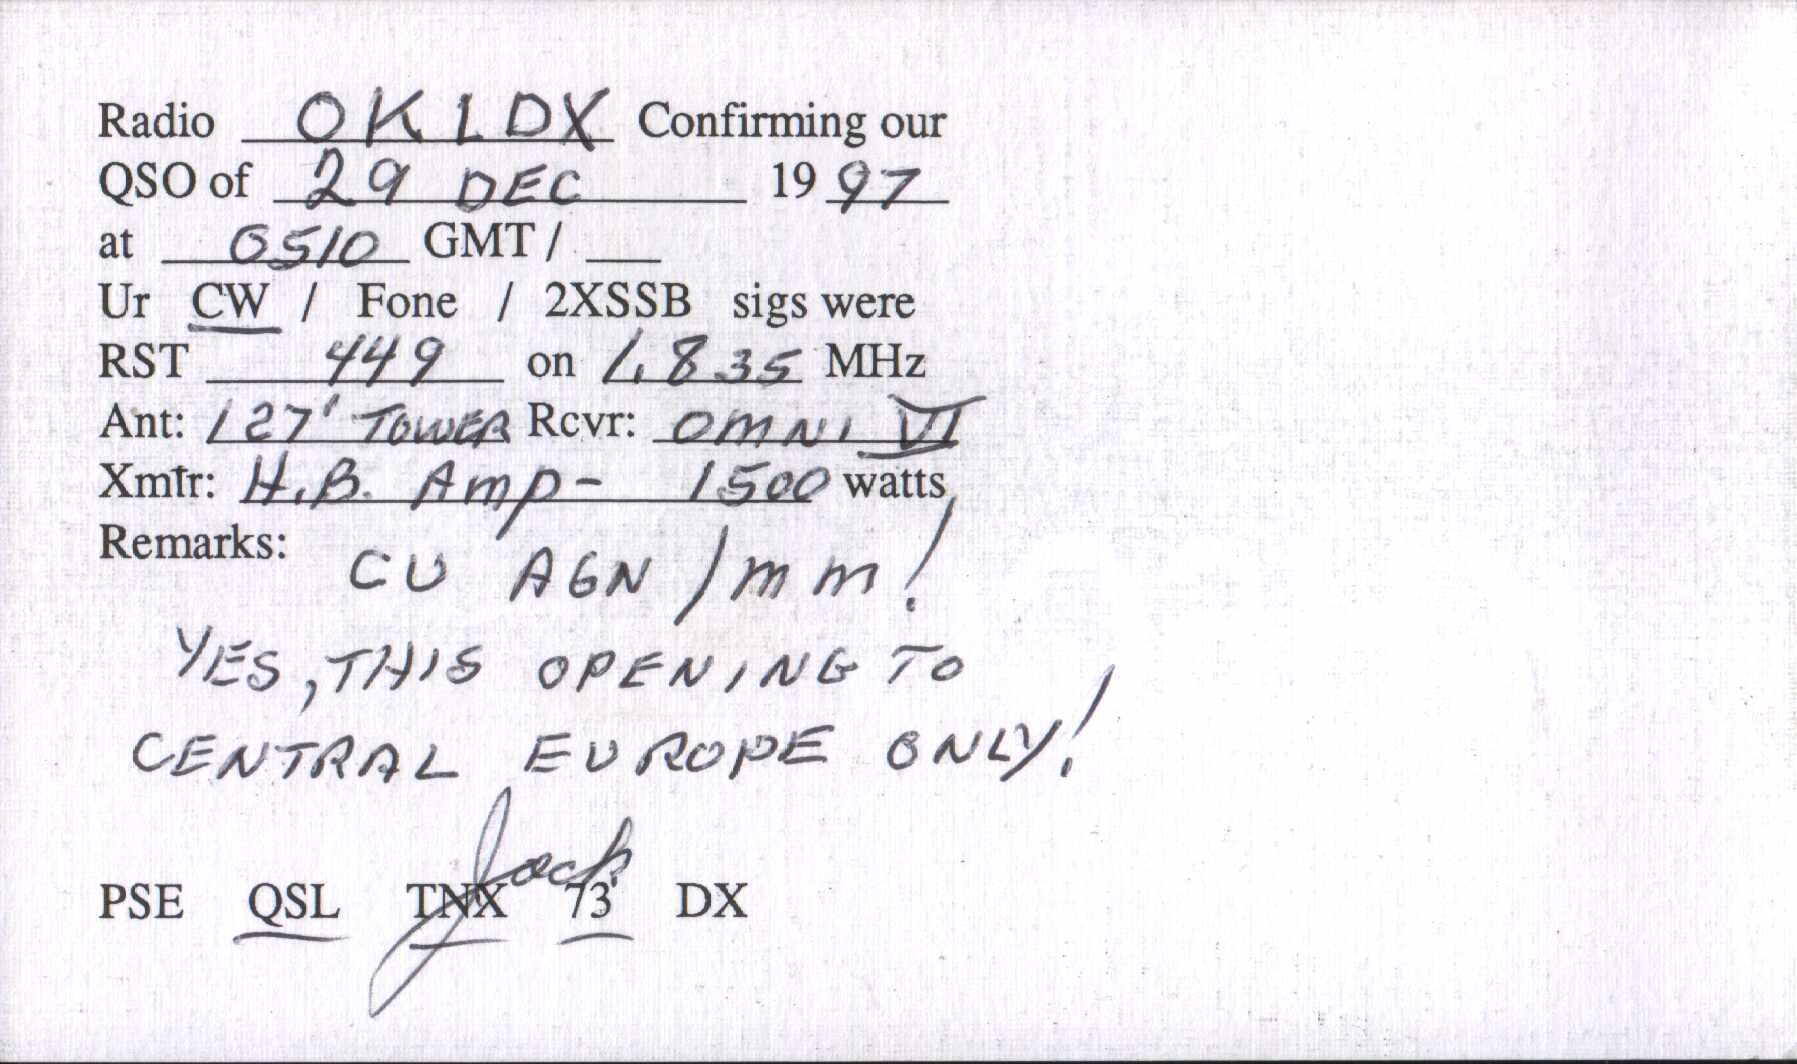 Radio OK1DX Confirming our
QSO of 29 DEC 1997
at 0510 GMT /
Ur CW / Fone / 2XSSB sigs were
RST 449 on 1.835 MHz
Ant: 127' TOWER Rcvr: OMNI VI
Xmtr: H.B. Amp- 1500 watts
Remarks: CU AGN /mm!
YES, THIS OPENING TO
CENTRAL EUROPE ONLY!
Jack
PSE QSL TNX 73 DX